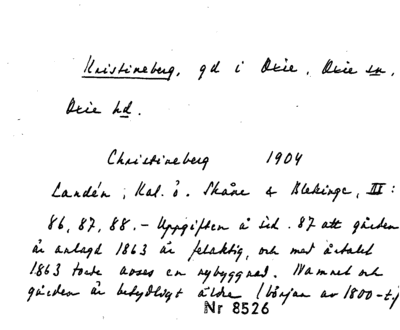 Kristineberg, gd i Oxie, Oxie sn,
Oxie hd.
Christineberg 1904
Landén, Kal. ö. Skåne & Blekinge, III:
86, 87, 88. – Uppgiften å sid. 87 att gården
är anlagd 1863 är felaktig, och med årtalet
1863 torde avses en nybyggnad. Namnet och
gården är betydligt äldre (början av 1800-t.)
Nr 8526